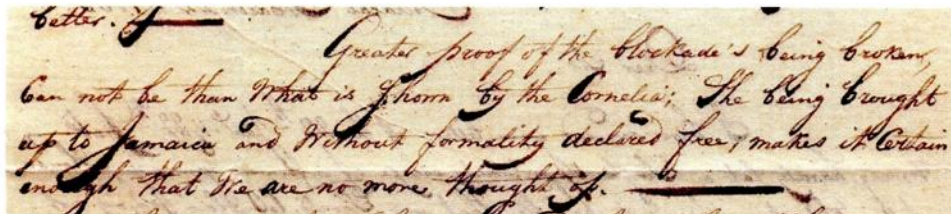 better.
Greater proof of the blockade's being broken,
Can not be than What is Shown by the Cornelia; She being brought
up to Jamaica and Without formality declared free, makes it Certain
enough that We are no more thought of.